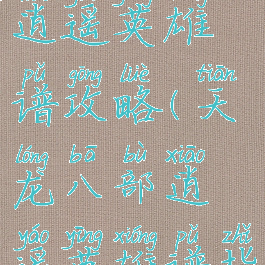 逍遥英雄
pǔ gōng lüè tiān
谱攻略(天
lóng bā bù xiāo
龙八部逍
yáo yīng xióng pǔ zhǐ
遥英雄谱指